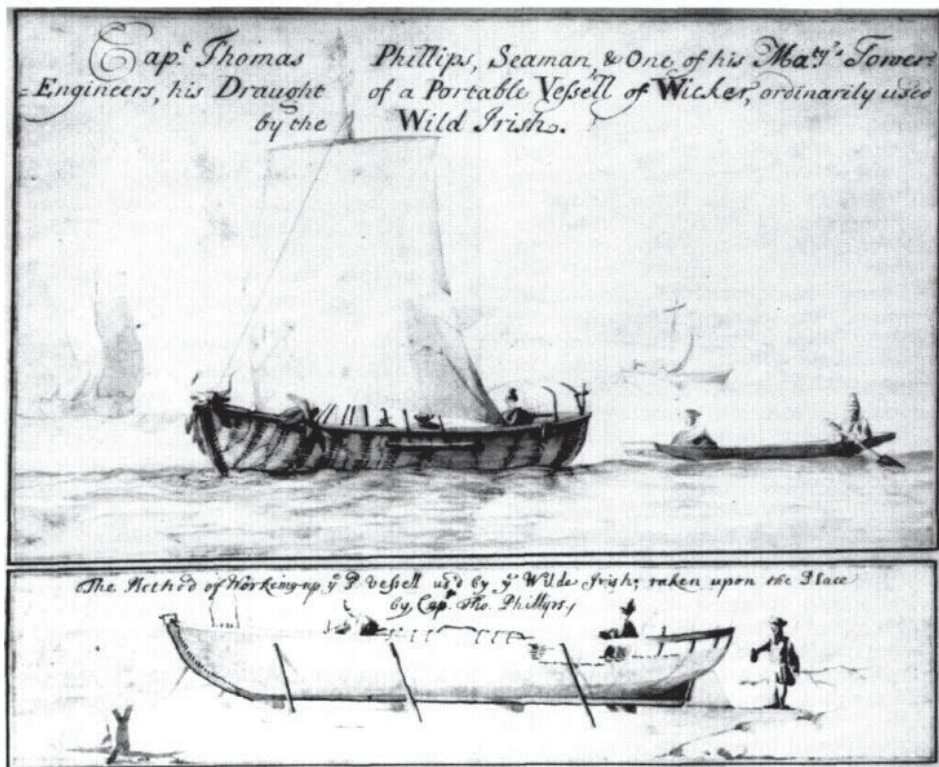 Capt. Thomas Phillips, Seaman, & One of his Maty's Tower
=Engineers, his Draught of a Portable Veſsell of Wicker, ordinarily used
by the Wild Irish.
The Method of Working up ye P. veſsell us'd by ye Wilde Irish; taken upon the Place
by Capt. Tho. Phillips,